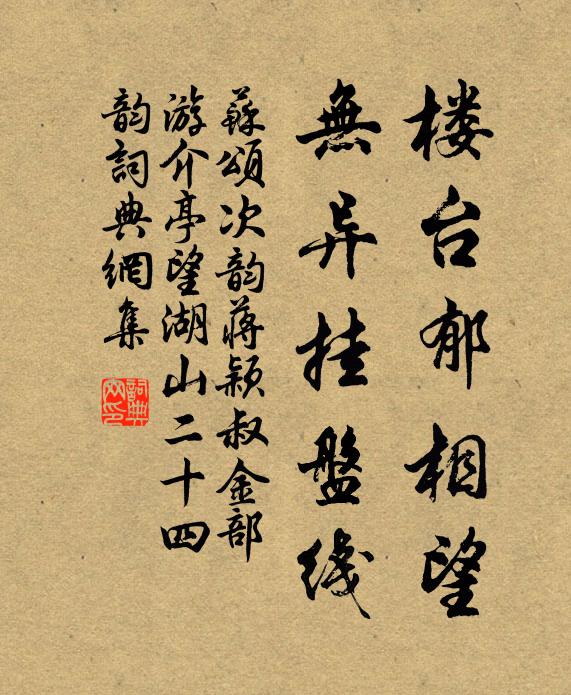 楼台郁相望
無异挂盤线
蘇頌次韵蔣颖叔金部
游介亭望湖山二十四
韵詞典網集
詞典
网印